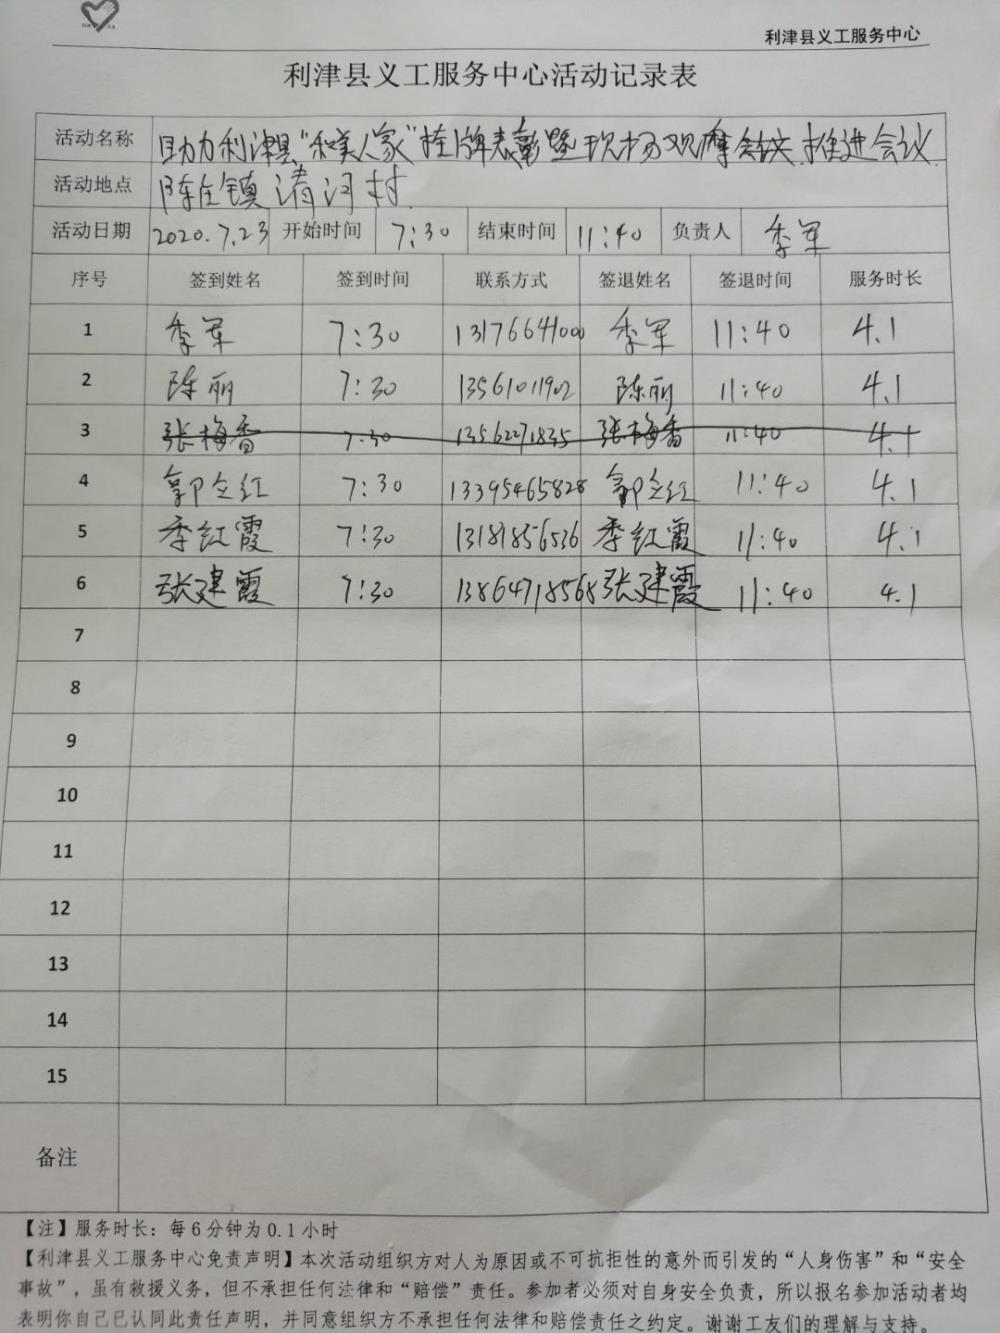 利津县义工服务中心
利津县义工服务中心活动记录表
活动名称 助力利津县"和美人家"挂牌表彰暨现场观摩会议推进会议
活动地点 陈庄镇清河村
活动日期 2020.7.23 开始时间 7:30 结束时间 11:40 负责人 李军
序号 签到姓名 签到时间 联系方式 签退姓名 签退时间 服务时长
1 李军 7:30 13176641000 李军 11:40 4.1
2 陈丽 7:30 13561011902 陈丽 11:40 4.1
3 张梅香 7:30 13562271835 张梅香 11:40 4.1
4 郭立红 7:30 13395465828 郭立红 11:40 4.1
5 季红霞 7:30 13181856536 季红霞 11:40 4.1
6 张建霞 7:30 13864718568 张建霞 11:40 4.1
7
8
9
10
11
12
13
14
15
备注
【注】服务时长：每6分钟为0.1小时
【利津县义工服务中心免责声明】本次活动组织方对人为原因或不可抗拒性的意外而引发的“人身伤害”和“安全
事故”，虽有救援义务，但不承担任何法律和“赔偿”责任。参加者必须对自身安全负责，所以报名参加活动者均
表明你自己已认同此责任声明，并同意组织方不承担任何法律和赔偿责任之约定。谢谢工友们的理解与支持。